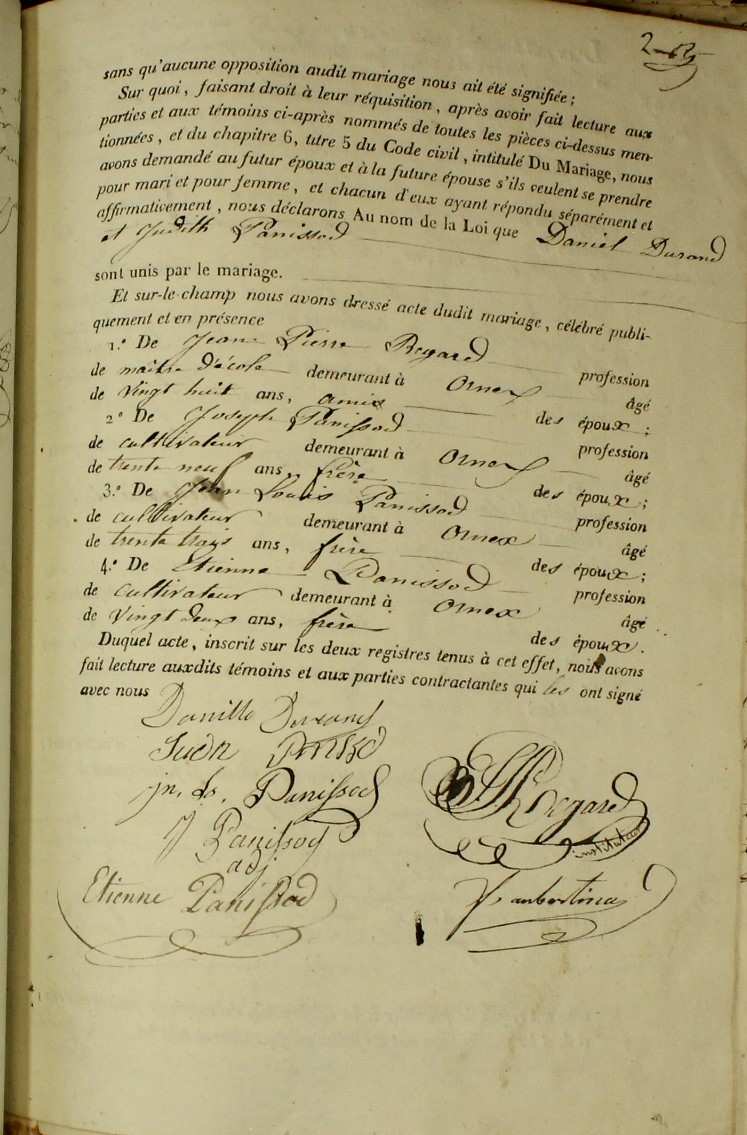 sans qu'aucune opposition audit mariage nous ait été signifiée ;
Sur quoi, faisant droit à leur réquisition, après avoir fait lecture aux
parties et aux témoins ci-après nommés de toutes les pièces ci-dessus men-
tionnées, et du chapitre 6, titre 5 du Code civil, intitulé Du Mariage, nous
avons demandé au futur époux et à la future épouse s'ils veulent se prendre
pour mari et pour femme, et chacun d'eux ayant répondu séparément et
affirmativement, nous déclarons Au nom de la Loi que Daniel Durand
et Judith Panissod
sont unis par le mariage.
Et sur-le-champ nous avons dressé acte dudit mariage, célébré publi-
quement et en présence
1.° De Jean Pierre Regard profession
de maitre d'école demeurant à Ornex âgé
de vingt huit ans, amis des époux ;
2° De Joseph Panissod profession
de cultivateur demeurant à Ornex âgé
de trente neuf ans, frère des époux ;
3.° De Jean Louis Panissod profession
de cultivateur demeurant à Ornex âgé
de trente trois ans, frère des époux ;
4.° De Etienne Panissod profession
de cultivateur demeurant à Ornex âgé
de vingt deux ans, frère des époux.
Duquel acte, inscrit sur les deux registres tenus à cet effet, nous avons
fait lecture auxdits témoins et aux parties contractantes qui les ont signé
avec nous
jn. Ls. Panissod
Regard
instituteur
J Panissod
adj
Etienne Panissod